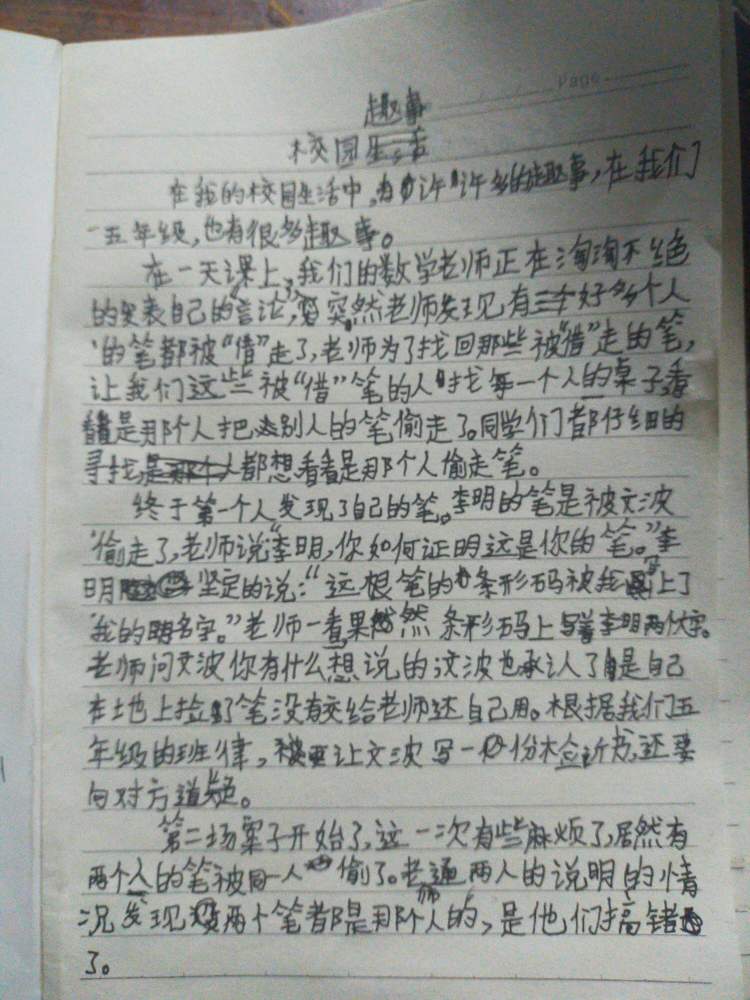 Page
趣事
校园生活
在我的校园生活中,有许许多的趣事,在我们
五年级,也有很多趣事。
在一天课上,我们的数学老师正在淘淘不绝
的发表自己的“言论”,突然老师发现有好多个人
的笔都被“借”走了,老师为了找回那些被“借”走的笔,
让我们这些被“借”笔的人找每一个人的桌子,看
看是那个人把别人的笔偷走了。同学们都仔细的
寻找,都想看看是那个人偷走笔。
终于第一个人发现了自己的笔。李明的笔是被文波
偷走了,老师说“李明,你如何证明这是你的笔。”李
明坚定的说:“这根笔的条形码被我写上了
我的名字。”老师一看果然条形码上写着李明两个大字。
老师问文波你有什么想说的文波也承认了是自己
在地上捡了笔没有交给老师还自己用。根据我们五
年级的班律,让文波写一份检讨书,还要
向对方道歉。
第二场案子开始了,这一次有些麻烦了,居然有
两个人的笔被同一人偷了。老师通两人的说明的情
况发现两个笔都是那个人的,是他们搞错
了。